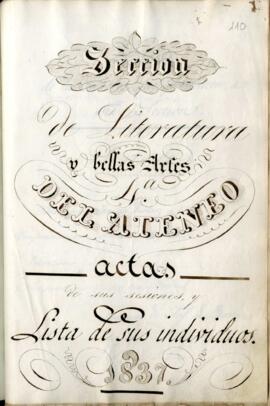 210
Seccion
de Literatura
y bellas Artes
4.ª
DEL ATENEO
actas
de sus sesiones, y
Lista de sus individuos.
1837.